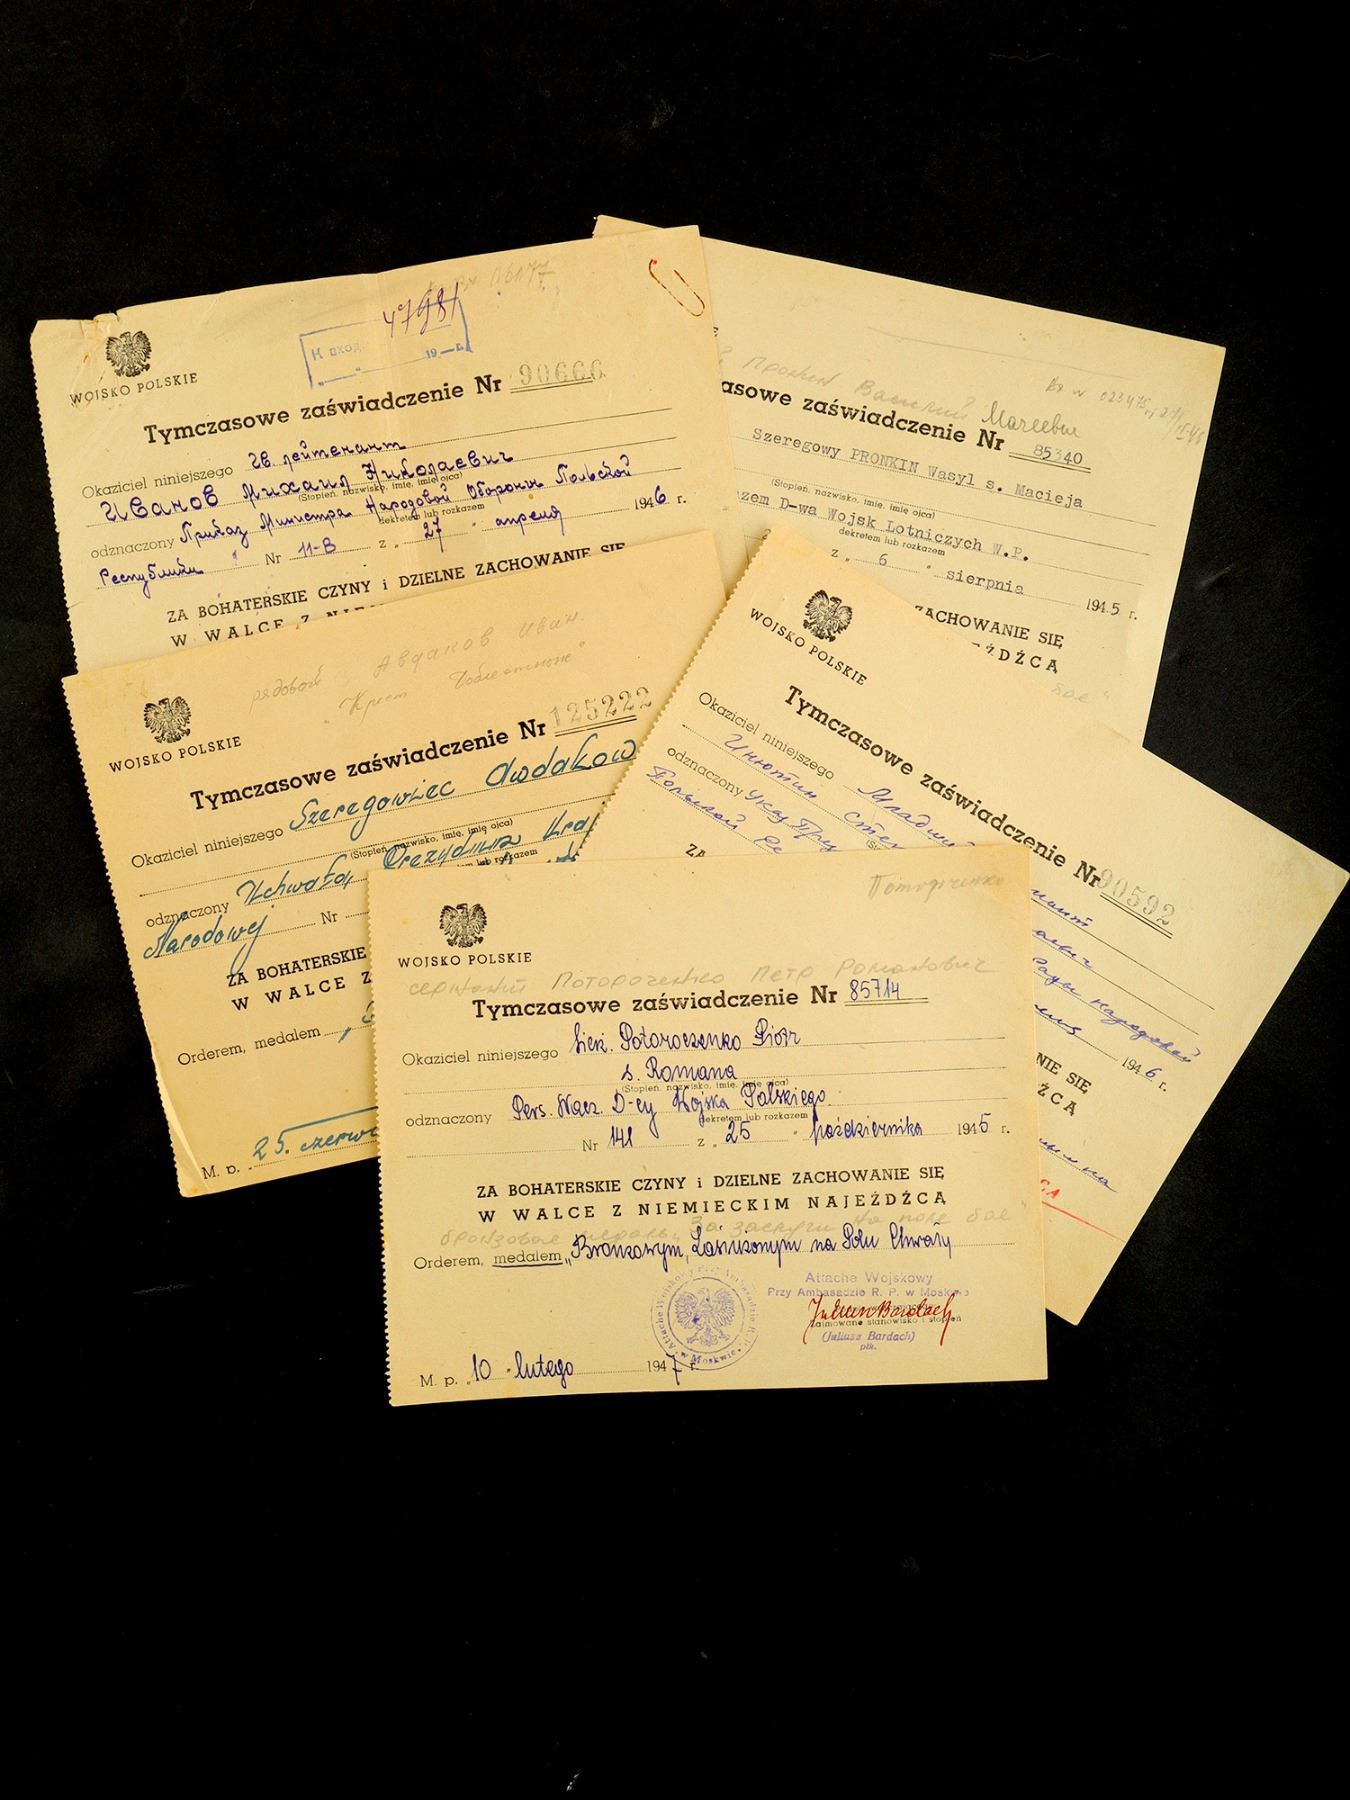 47981
Н вход.
19 — г.
WOJSKO POLSKIE
Tymczasowe zaświadczenie Nr 90666
Okaziciel niniejszego Гв. лейтенант
Иванов Михаил Николаевич
(Stopień, nazwisko, imię, imię ojca)
odznaczony Приказ Министра Народовой Обороны Польской
dekretem lub rozkazem
Республики Nr 11-В z „ 27 " апреля 1946 r.
ZA BOHATERSKIE CZYNY i DZIELNE ZACHOWANIE SIĘ
W WALCE Z
Пронкин Василий Матеевич
asowe zaświadczenie Nr 85340
Szeregowy PRONKIN Wasyl s. Macieja
(Stopień, nazwisko, imię, imię ojca)
zem D-wa Wojsk Lotniczych W.P.
dekretem lub rozkazem
z „ 6 " sierpnia 1945 r.
ZACHOWANIE SIĘ
EŹDŹCĄ
рядовой Авдаков Иван
WOJSKO POLSKIE
Tymczasowe zaświadczenie Nr 125222
Okaziciel niniejszego Szeregowiec Awdakow
(Stopień, nazwisko, imię, imię ojca)
odznaczony Uchwałą Prezydium Kraj
lub rozkazem
Narodowej Nr
ZA BOHATERSKIE
W WALCE Z
Orderem, medalem
M. p. „ 25. czerwc
WOJSKO POLSKIE
Tymczasowe zaświadczenie Nr 90592
Okaziciel niniejszego Младший
Инютин Степ
odznaczony Указ През
Польской Ре
ZA
Рады народовой
1946 r.
NIE SIĘ
ŹCĄ
Потороченко
WOJSKO POLSKIE
сержант Потороченко Петр Романович
Tymczasowe zaświadczenie Nr 85714
Okaziciel niniejszego sierż. Potoroczenko Piotr
s. Romana
(Stopień, nazwisko, imię, imię ojca)
odznaczony Pers. Nacz. D-cy Wojska Polskiego
dekretem lub rozkazem
Nr 141 z „ 25 " października 1945 r.
ZA BOHATERSKIE CZYNY i DZIELNE ZACHOWANIE SIĘ
W WALCE Z NIEMIECKIM NAJEŹDŹCĄ
бронзовые медаль „За заслуги на поле бое"
Orderem, medalem „Bronzowym, Zasłużonym na Polu Chwały
Attache Wojskowy
Przy Ambasadzie R. P. w Moskwie
Juliusz Bardach
zajmowane stanowisko i stopień
(Juliusz Bardach)
płk.
Attache Wojskowy Przy Ambasadzie R. P. w Moskwie
M. p. „ 10 " lutego 1947 r.